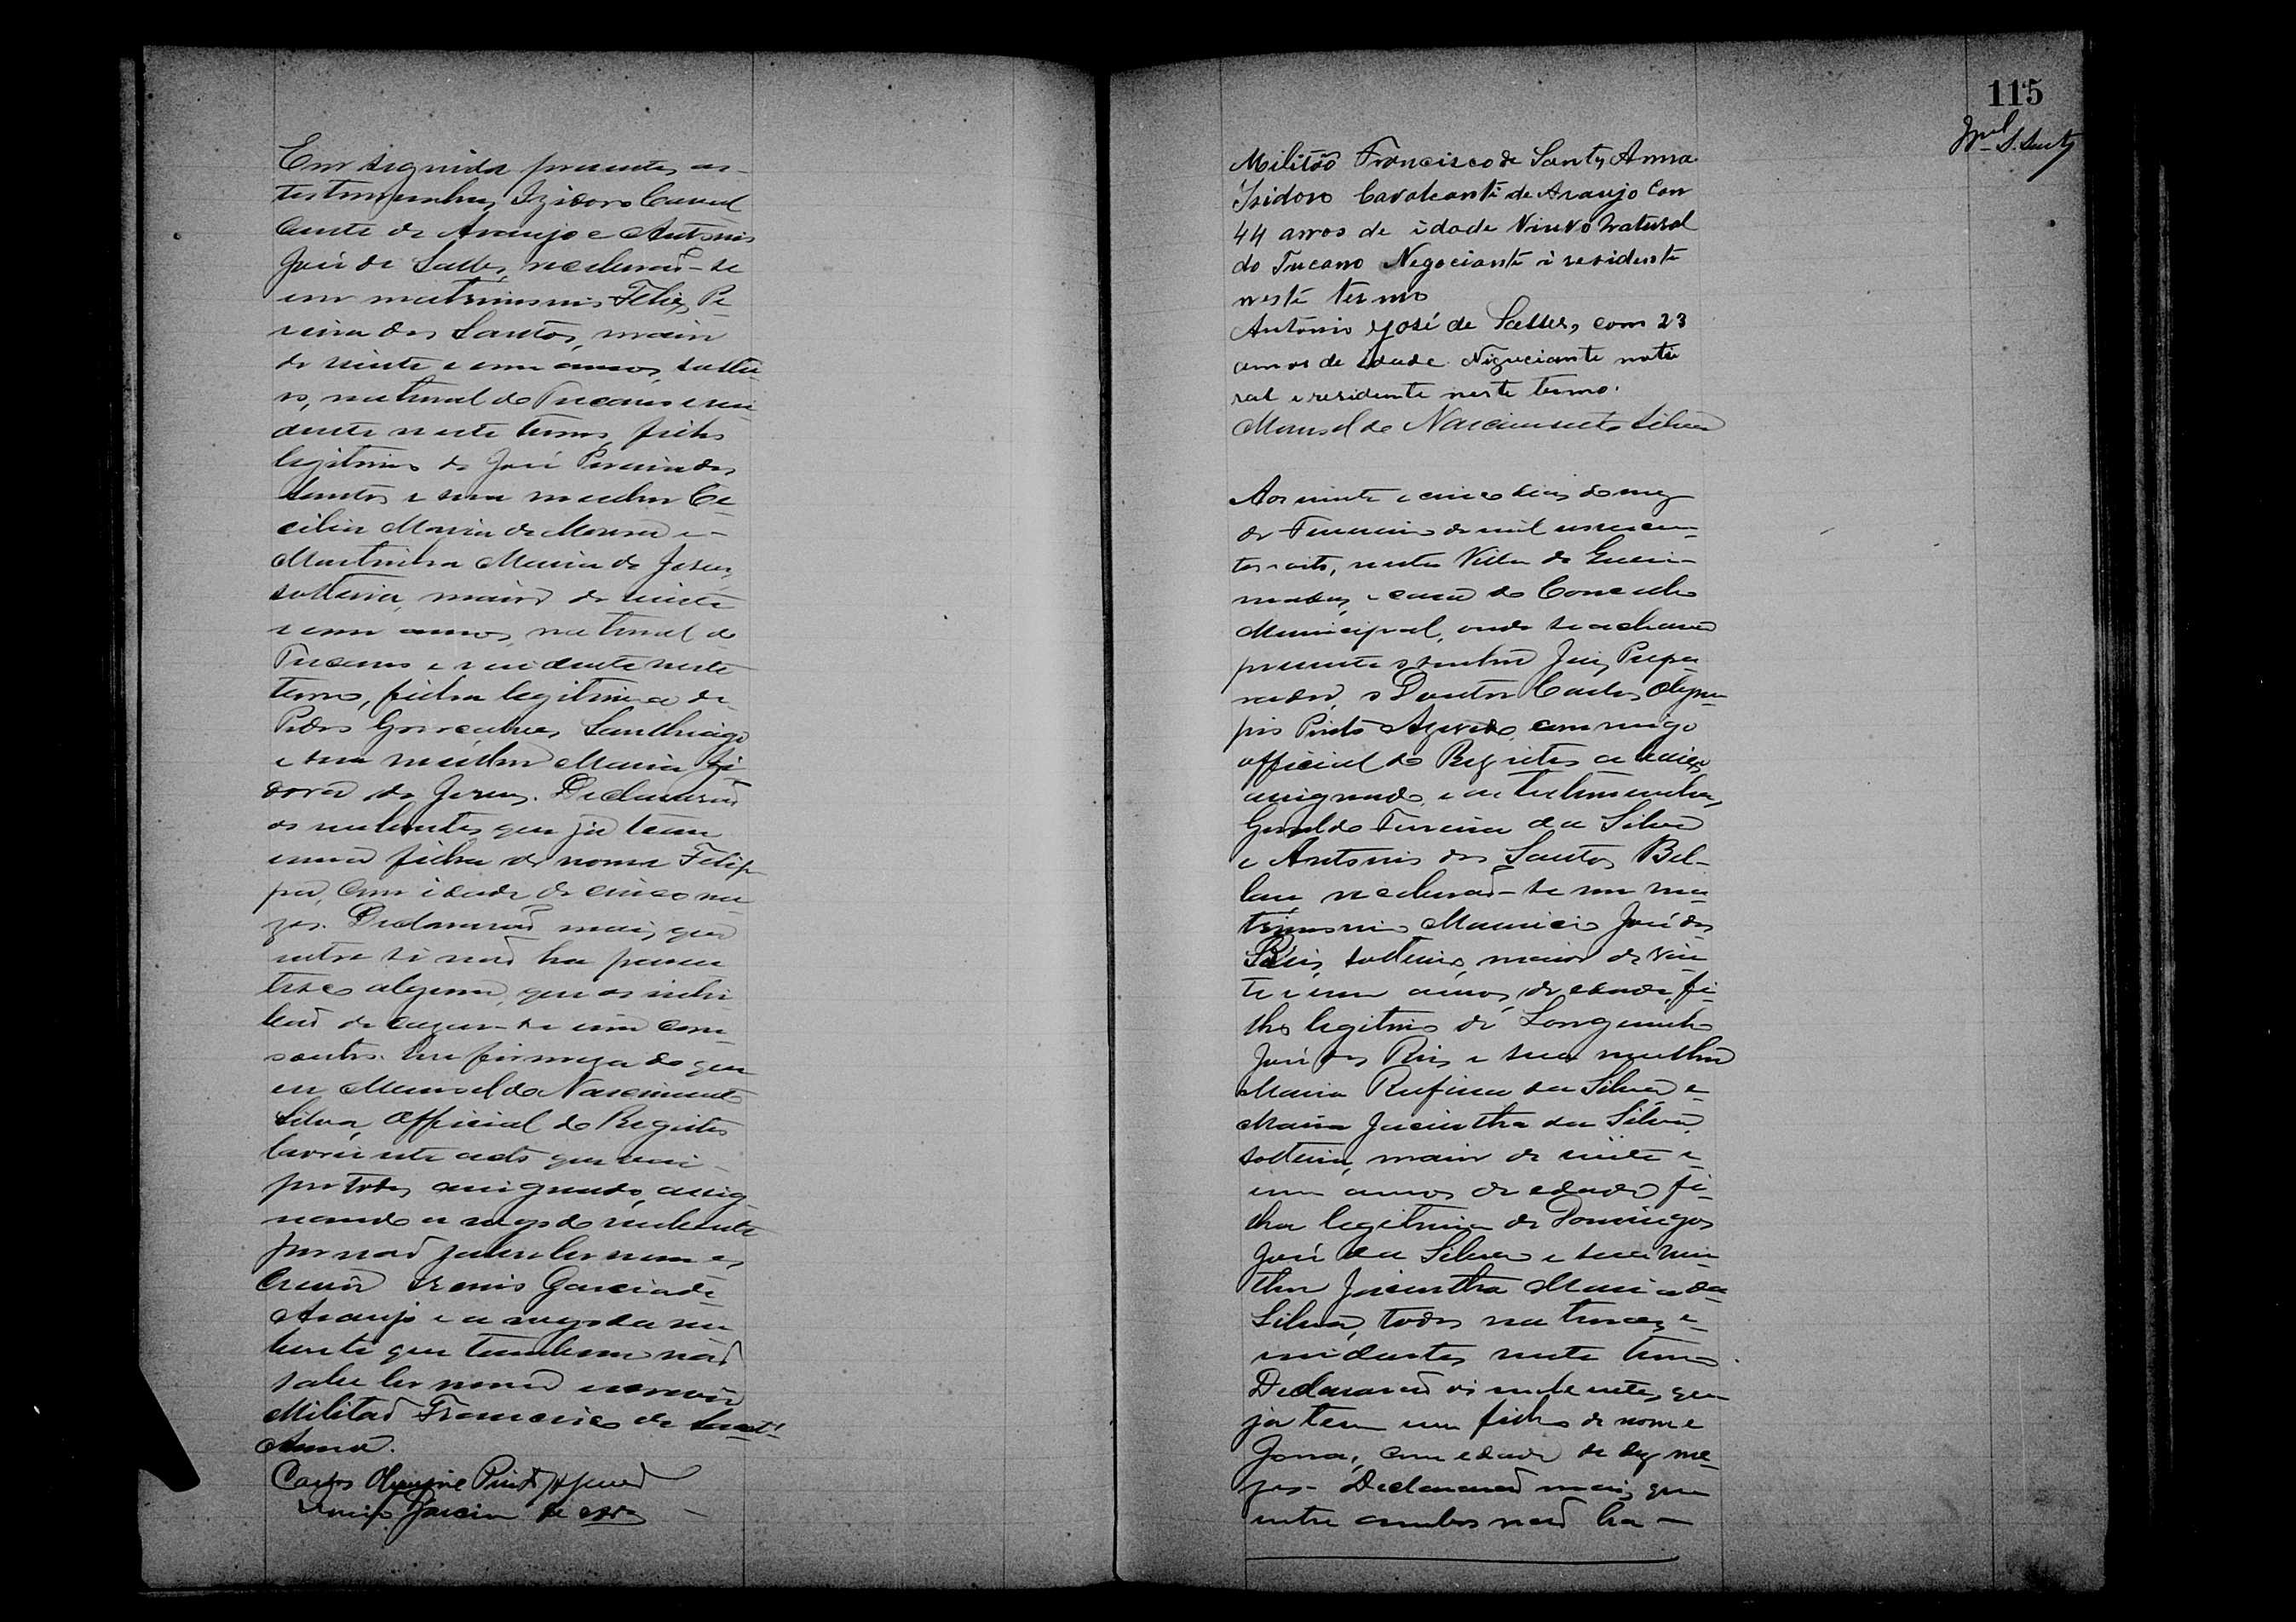 Em seguida presentes as
testemunhas, Izidoro Caval
cante de Araujo e Antonio
José de Salles, receberaõ-se
em matrimonio Felix Pe
reira dos Santos, maior
de vinte e um annos, soltei
ro, natural do Tucano e resi
dente neste termo, filho
legitimo de José Pereira dos
Santos e sua mulher Ce
cilia Maria de Moura e
Martinha Maria de Jesus,
solteira, maior de vinte
e um annos, natural do
Tucano e residente neste
termo, filha legitima de
Pedro Gonçalves Santhiago
e sua mulher Maria Izi
dora de Jesus. Declararaõ
os nubentes que já teem
uma filha de nome Felip
pa, com idade de cinco me
zes. Declararaõ mais que
entre si naõ ha paren
tesco algum, que os inhi
baõ de cazar-se um com
o outro. Em firmeza do que
eu Manoel do Nascimento
Silva, Official do Registro
lavrei este acto que vai
por todos assignado, assig
nando a rogo do nubente
por naõ saber ler nem es
crever Garcia de
Araujo e a rogo da nu
bente que tambem naõ
sabe ler nem escrever
Militaõ Francisco de Sant'
Anna.
Carlos Olympio Pinto Azevedo
Garcia de
115
Militão Francisco de Sant'Anna
Isidoro Cavalcanti de Araujo Com
44 annos de idade Viuvo Natural
do Tucano Negociante i residente
neste termo
Antonio José de Salles, com 23
annos de idade Niguciante natu
ral e residente neste termo.
Manoel do Nascimento Silva
Aos vinte e cinco dias do mez
de Fevereiro de mil novecen
tos e oito, nesta Villa de Quei-
madas, e casa do Conselho
Municipal, onde se achava
presente o senhor Juiz Prepa
rador, o Doutor Carlos Olym
pio Pinto Azevedo, commigo
official do Registro a baixo
assignado e as testemunhas,
Geraldo Ferreira da Silva
e Antonio dos Santos Bel-
receberaõ-se em ma
trimonio Mauricio José dos
Reis, solteiro, maior de vin
te e um annos, de edade, fi
lho legitimo de Longuinho
José dos Reis e sua mulher
Maria Rufina da Silva e
Maria Jacintha da Silva,
solteira, maior de vinte e
um annos de edade, fi
lha legitima de Domingos
José da Silva e sua mu
lher Jacintha Maria da
Silva, todos naturaes e
residentes neste termo.
Declararaõ os nubentes, que
já tem um filho de nome
com edade de dez me
zes. Declararaõ mais, que
entre ambos naõ ha